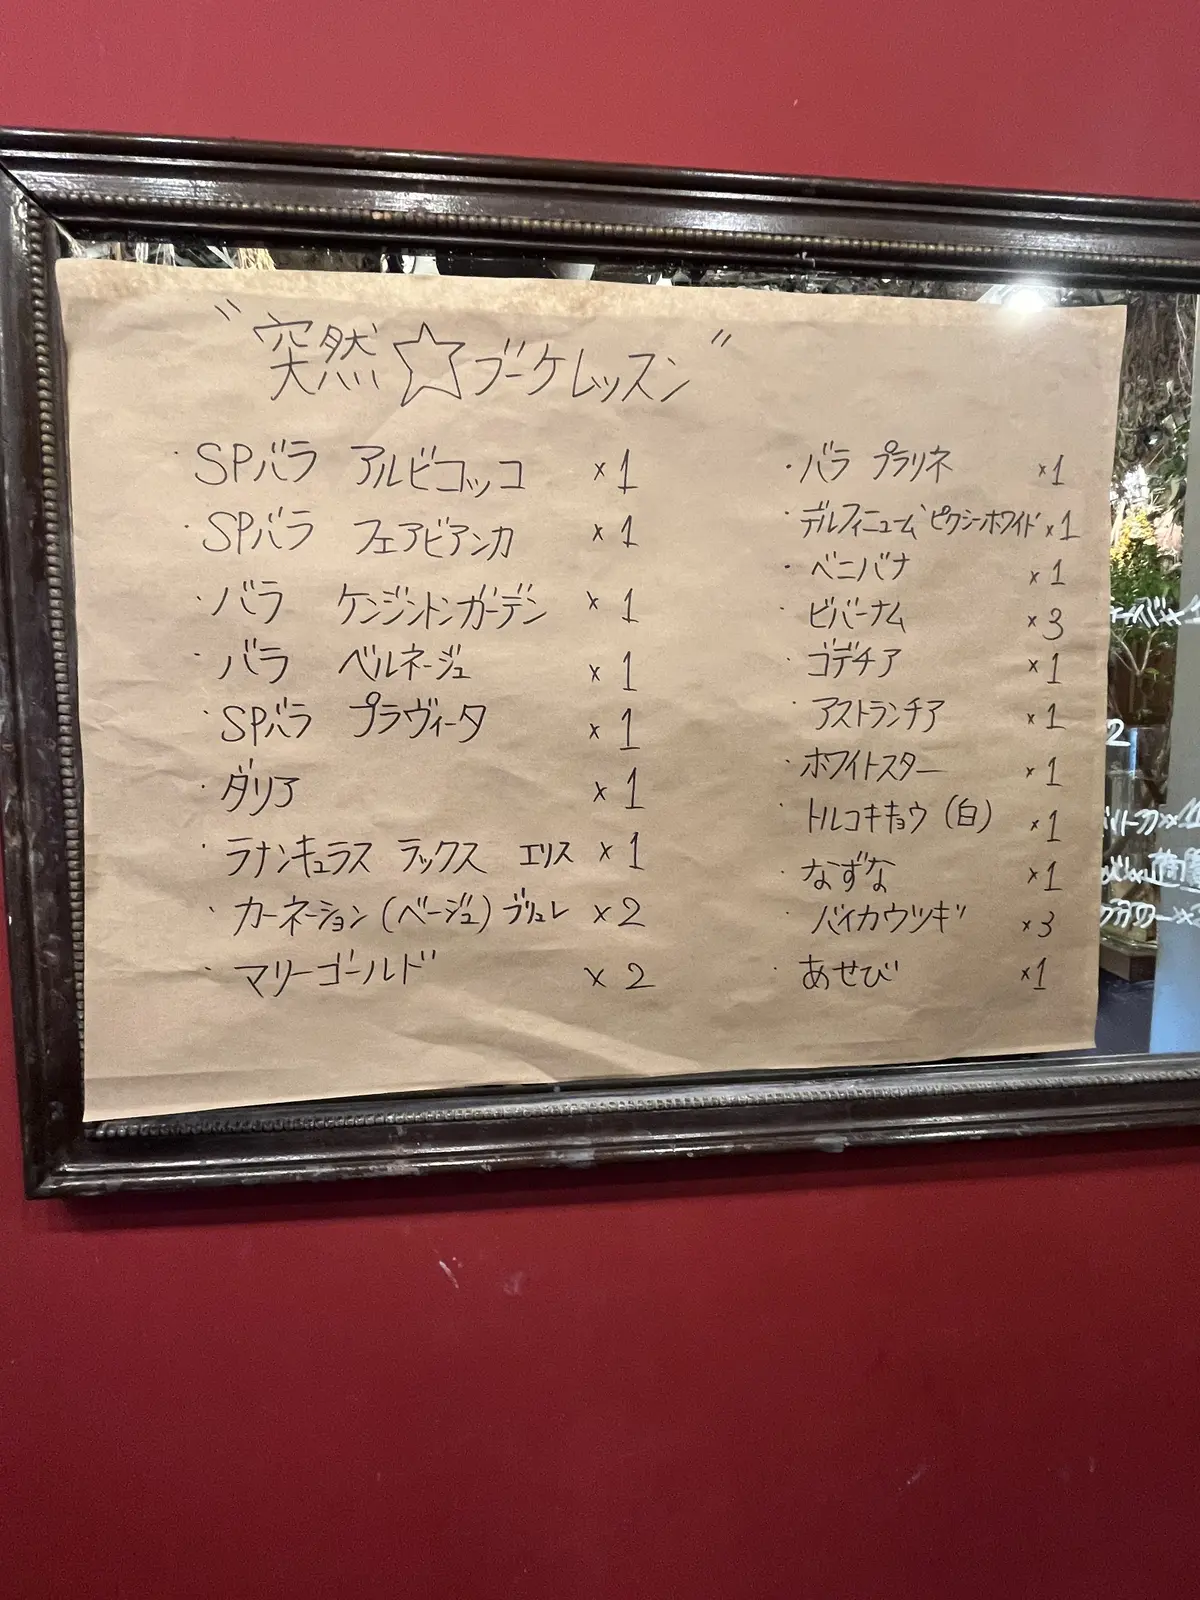 "突然☆ブーケレッスン"
・SPバラ アルビコッコ ×1
・SPバラ フェアビアンカ ×1
・バラ ケンジントンガーデン ×1
・バラ ベルネージュ ×1
・SPバラ プラヴィータ ×1
・ダリア ×1
・ラナンキュラス ラックス エリス ×1
・カーネーション(ベージュ)ブリュレ ×2
・マリーゴールド ×2
・バラ プラリネ ×1
・デルフィニューム ピクシーホワイト ×1
・ベニバナ ×1
・ビバーナム ×3
・ゴデチア ×1
・アストランチア ×1
・ホワイトスター ×1
・トルコキキョウ(白) ×1
・なずな ×1
・バイカウツギ ×3
・あせび ×1
2